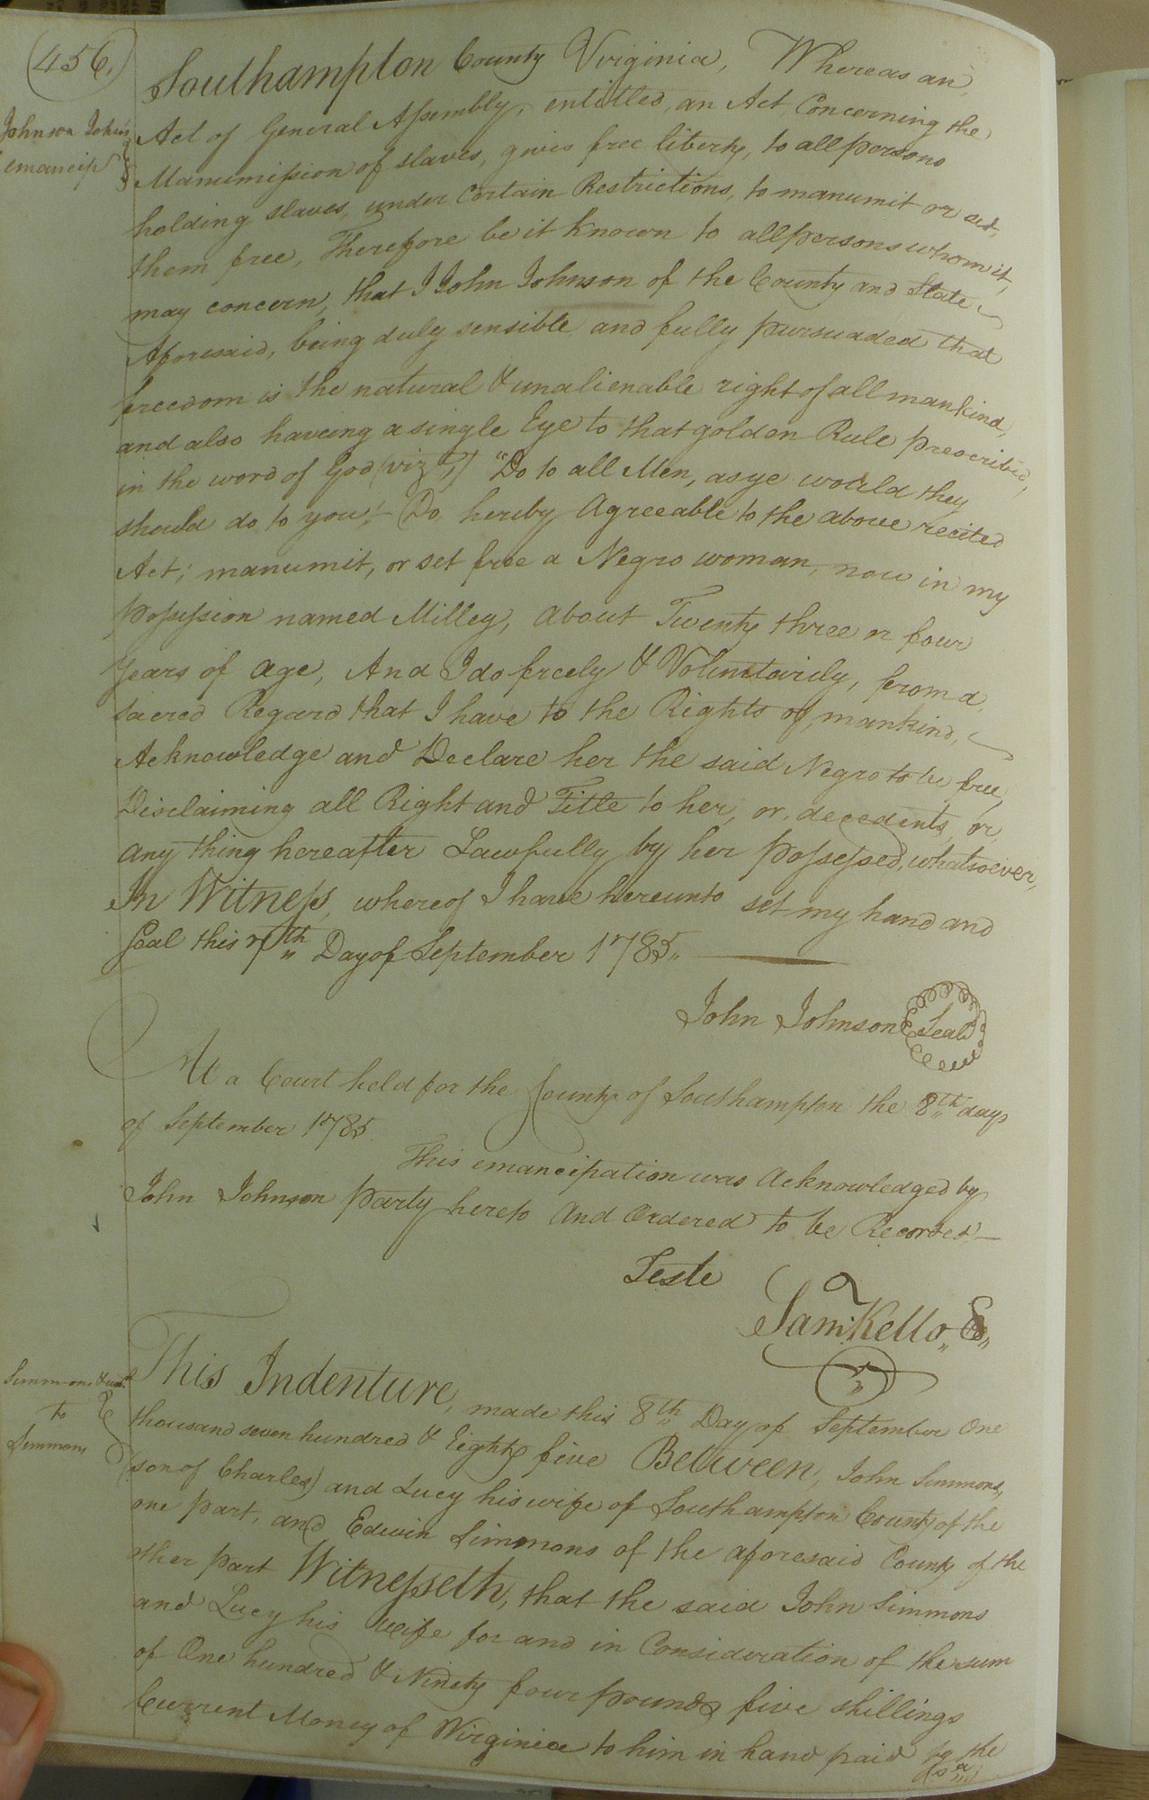 (456.)
Southampton County Virginia, Whereas an
Johnson John's
emancip
Act of General Assembly, entitled, an Act Concerning the
Manumission of slaves, gives free liberty, to all persons
holding slaves, under Certain Restrictions, to manumit or set
them free, Therefore be it known to all persons whom it
may concern, that I John Johnson of the County and State
Aforesaid, being duly sensible and fully pursuaded that
freedom is the natural & unalienable right of all mankind,
and also haveing a single Eye to that golden Rule prescribed,
in the word of God (vizt,) "Do to all Men, as ye would they
should do to you"- Do hereby Agreeable to the above recited
Act; manumit, or set free a Negro woman, now in my
Possession named Milley, about Twenty three or four
years of age, And I do freely & Voluntarily, from a
sacred Regard that I have to the Rights of mankind,
Acknowledge and Declare her the said Negro to be free,
Disclaiming all Right and Title to her, or decedents, or
any thing hereafter Lawfully by her possessed, whatsoever,
In Witness, whereof I have hereunto set my hand and
Seal this 7th Day of September 1785,
John Johnson Seal
At a Court held for the County of Southampton the 8th day
of September 1785
This emancipation was Acknowledged by
John Johnson party hereto And Ordered to be Recorded -
Teste
Sam: Kello,
Simmons & ux.
to
Simmons
This Indenture, made this 8th Day of September One
thousand seven hundred & Eighty five Between, John Simmons,
(son of Charles) and Lucy his wife of Southampton County of the
one part, and Edwin Simmons of the aforesaid County of the
other part Witnesseth, that the said John Simmons
and Lucy his wife for and in Consideration of the sum
of One hundred & Ninety four pounds five shillings
Current Money of Virginia to him in hand paid by the